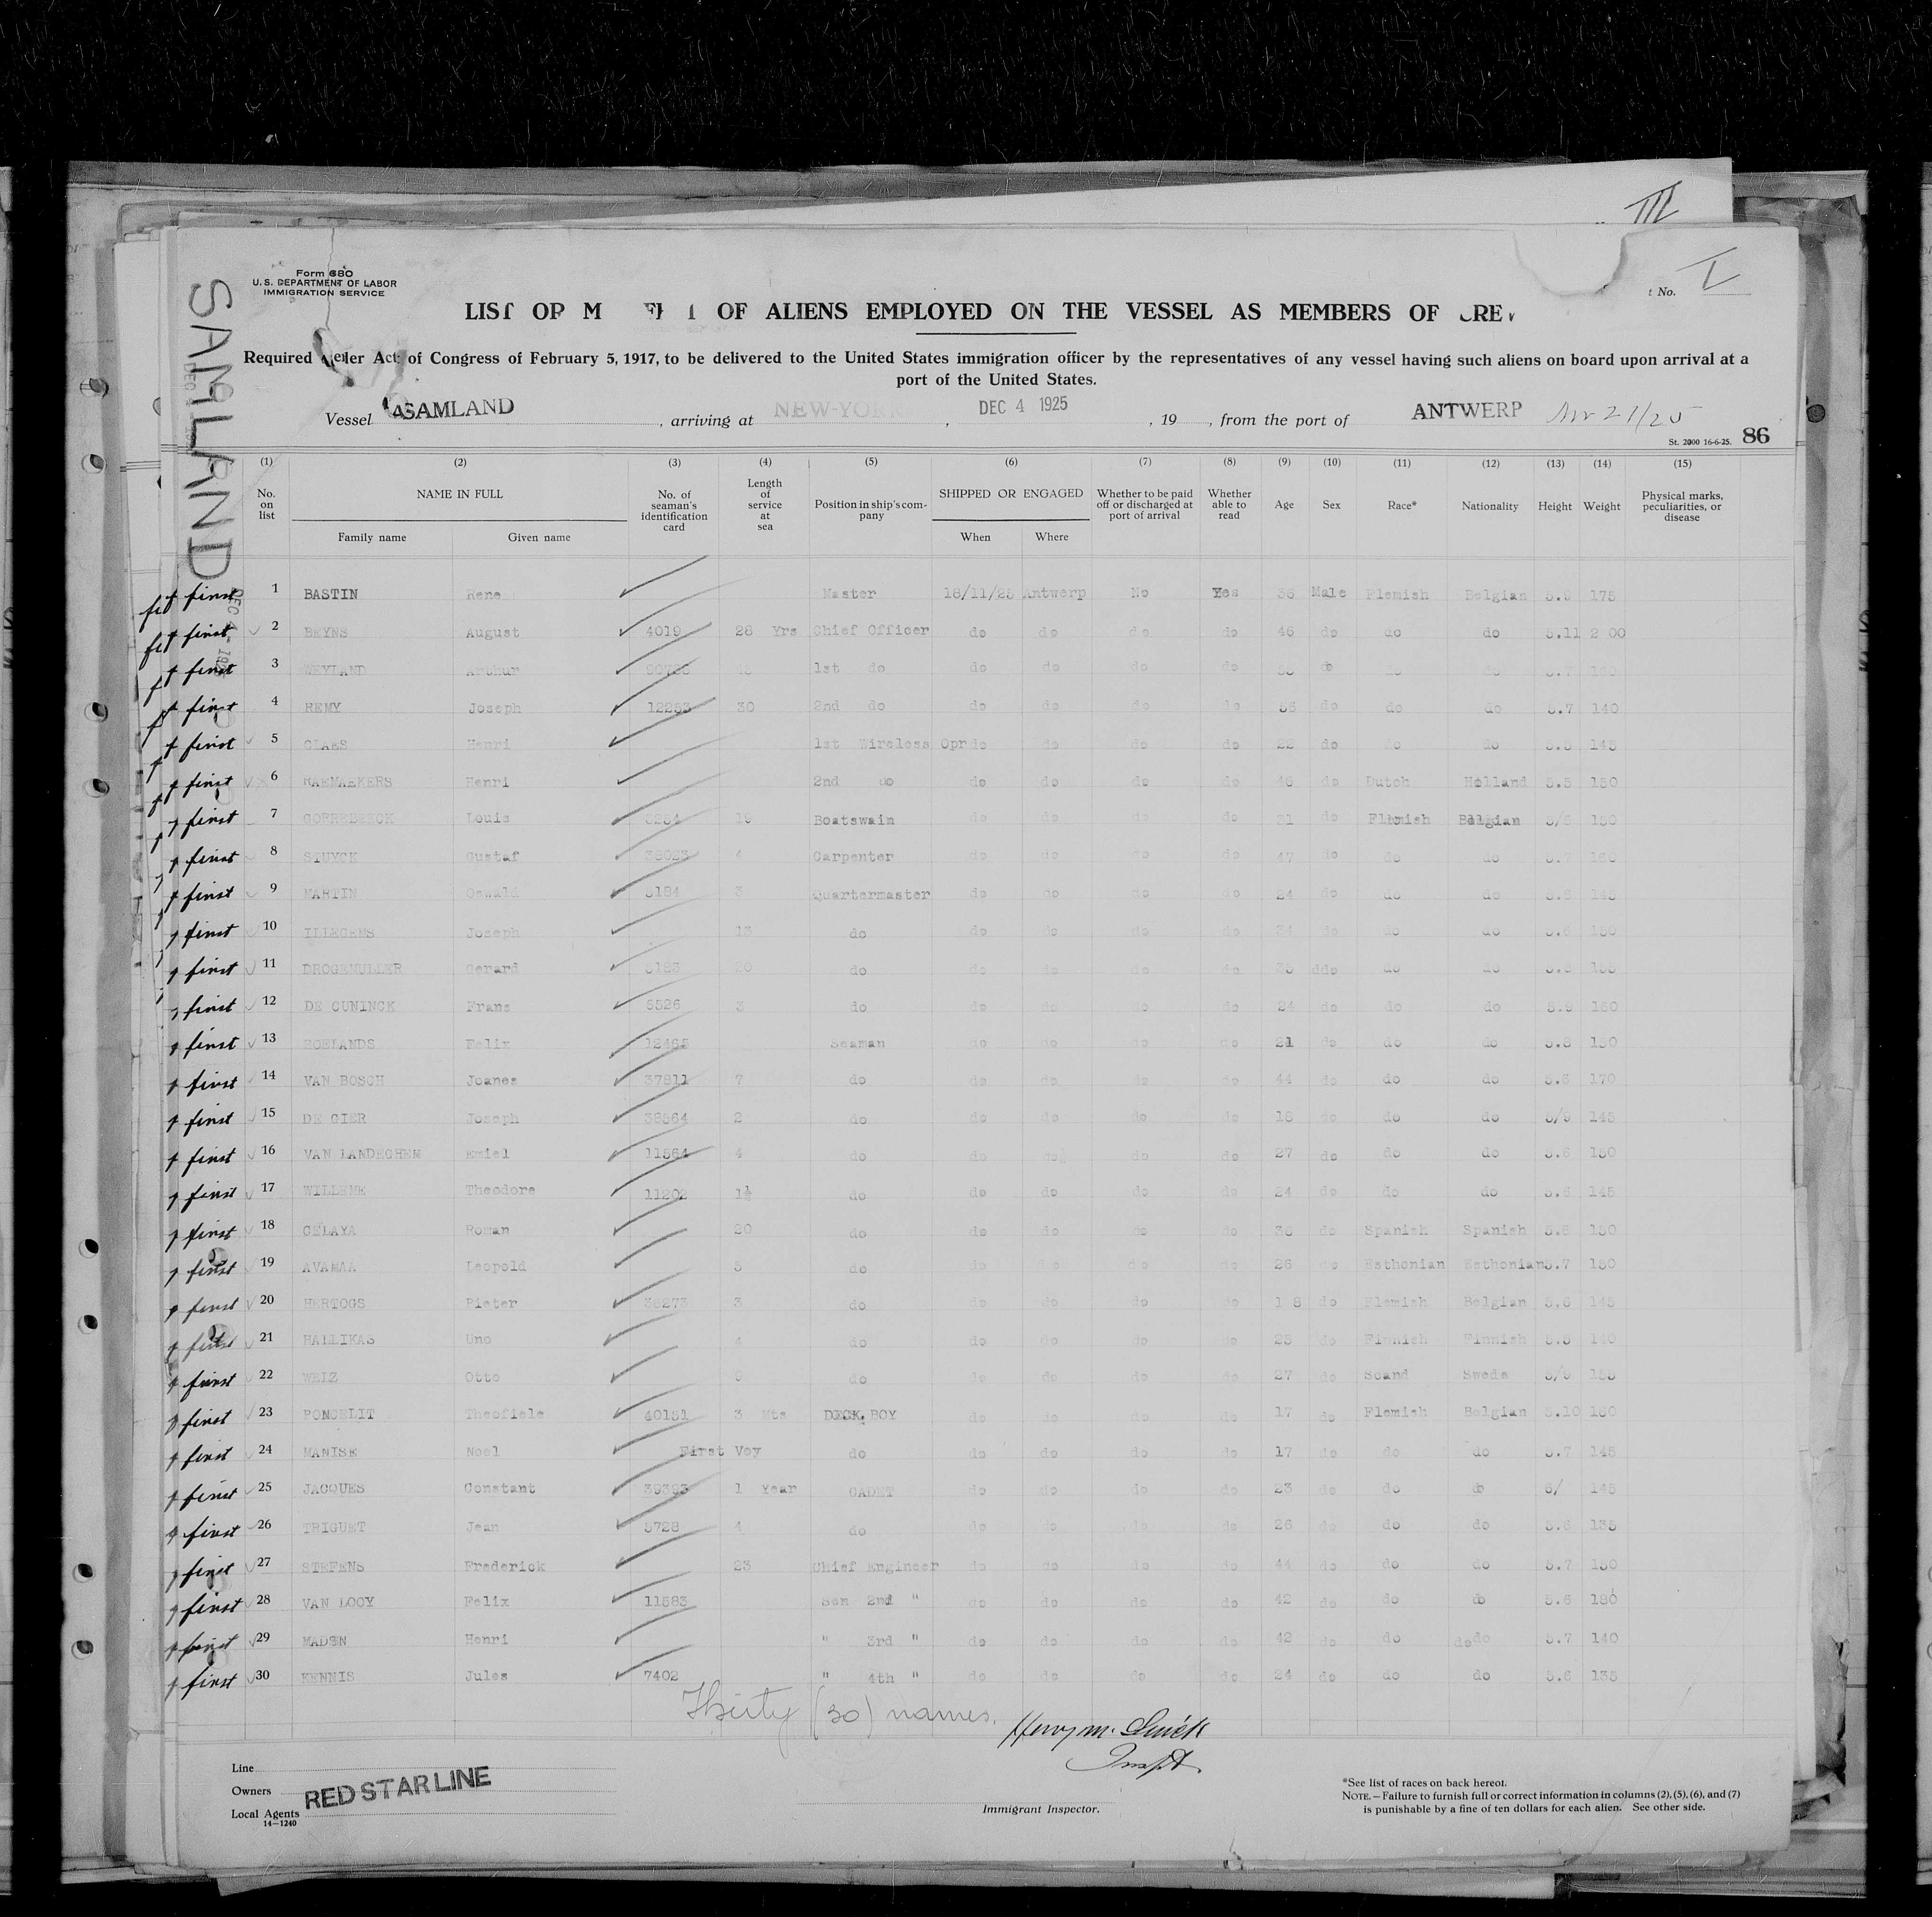 III
Form 680
U. S. DEPARTMENT OF LABOR
IMMIGRATION SERVICE
t No. I
LIST OF M OF ALIENS EMPLOYED ON THE VESSEL AS MEMBERS OF CREW
Required under Act of Congress of February 5, 1917, to be delivered to the United States immigration officer by the representatives of any vessel having such aliens on board upon arrival at a
port of the United States.
Vessel SAMLAND, arriving at NEW-YORK, DEC 4 1925, 19, from the port of ANTWERP Nov 21/25
St. 2000 16-6-25. 86
SAMLAND
DEC 4 - 192
(1) (2) (3) (4) (5) (6) (7) (8) (9) (10) (11) (12) (13) (14) (15)
No. on list NAME IN FULL Family name Given name No. of seaman's identification card Length of service at sea Position in ship's company SHIPPED OR ENGAGED When Where Whether to be paid off or discharged at port of arrival Whether able to read Age Sex Race* Nationality Height Weight Physical marks, peculiarities, or disease
first 1 BASTIN Rene Master 18/11/25 Antwerp No Yes 36 Male Flemish Belgian 5.9 175
first 2 BEYNS August 4019 28 Yrs Chief Officer do do do do 46 do do do 5.11 2 00
first 3 WEYLAND Arthur 1st do do do do do do do do 5.7 160
first 4 REMY Joseph 12253 30 2nd do do do do do do do do 5.7 140
first 5 CLAES Henri 1st Wireless Opr do do do do 22 do do do 145
first 6 RAEMAEKERS Henri 2nd do do do do do 46 do Dutch Holland 5.5 150
first 7 Louis 19 Boatswain do do do do 31 do Flemish Belgian 150
first 8 STUYCK Gustaf 38023 4 Carpenter do do do do 47 do do do 5.7 160
first 9 MARTIN Oswald 5184 3 Quartermaster do do do do 24 do do do 5.6 145
first 10 ILLEGEMS Joseph 13 do do do do do 34 do do do 5.6 150
first 11 DROGEMULLER Gerard 20 do do do do do ddo do do
first 12 DE CUNINCK Frans 5526 3 do do do do do 24 do do do 5.9 160
first 13 ROELANDS Felix 12465 Seaman do do do do 21 do do do 5.8 150
first 14 VAN BOSCH Joanes 37811 7 do do do do do 44 do do do 5.6 170
first 15 DE GIER Joseph 38564 2 do do do do do 18 do do do 5/9 145
first 16 VAN LANDEGHEM Emiel 11564 4 do do do do do 27 do do do 5.6 150
first 17 WILLEME Theodore 11202 1½ do do do do do 24 do do do 5.6 145
first 18 GELAYA Roman 20 do do do do do 36 do Spanish Spanish 5.6 150
first 19 AVAMAA Leopold 5 do do do do do 26 do Esthonian Esthonian 5.7 150
first 20 HERTOGS Pieter 38273 3 do do do do do 1 8 do Flemish Belgian 5.6 145
first 21 HALLIKAS Uno 4 do do do do do 25 do Finnish Finnish 140
first 22 WELZ Otto do do do do do 27 do Scand Swede
first 23 PONCELIT Theofiele 40151 3 Mts DECK BOY do do do do 17 do Flemish Belgian 5.10 160
first 24 MANISE Noel First Voy do do do do do 17 do do do 5.7 145
first 25 JACQUES Constant 39393 1 Year CADET do do do do 23 do do do 6/ 145
first 26 TRIGUET Jean 5728 4 do do do do do 26 do do do 5.6 135
first 27 STEFENS Frederick 23 Chief Engineer do do do do 44 do do do 5.7 150
first 28 VAN LOOY Felix 11583 Sen 2nd " do do do do 42 do do do 5.6 180
first 29 MADEN Henri " 3rd " do do do do 42 do do dodo 5.7 140
first 30 KENNIS Jules 7402 " 4th " do do do do 24 do do do 5.6 135
Thirty (30) names.
Inspt.
Line
Owners RED STAR LINE
Local Agents
14—1240
Immigrant Inspector.
*See list of races on back hereof.
NOTE.—Failure to furnish full or correct information in columns (2), (5), (6), and (7)
is punishable by a fine of ten dollars for each alien. See other side.